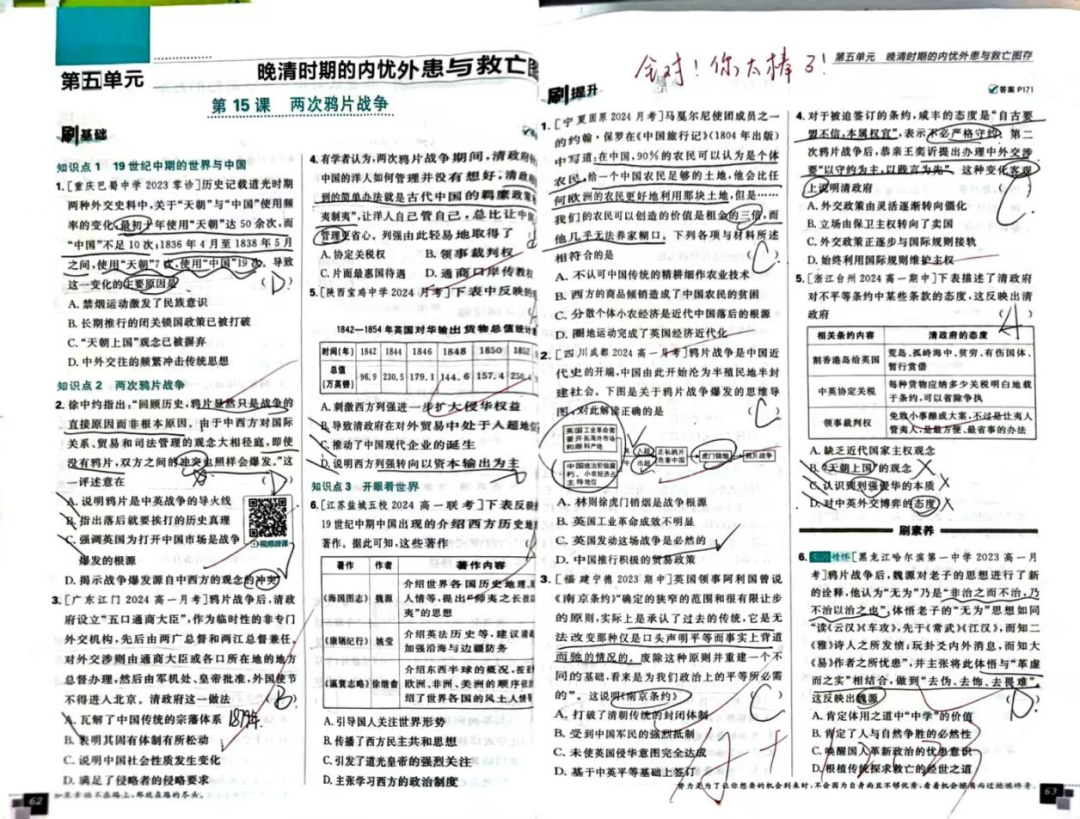 第五单元
晚清时期的内忧外患与救亡图
第 15 课 两次鸦片战争
刷基础
知识点 1 19 世纪中期的世界与中国
1.[重庆巴蜀中学 2023 零诊]历史记载道光时期
两种外交史料中,关于“天朝”与“中国”使用频
率的变化,最初十年使用“天朝”达 50 余次,而
“中国”不足 10 次;1836 年 4 月至 1838 年 5 月
之间,使用“天朝”7 次,使用“中国”19 次。导致
这一变化的主要原因是 (D)
A. 禁烟运动激发了民族意识
B. 长期推行的闭关锁国政策已被打破
C. “天朝上国”观念已被摒弃
D. 中外交往的频繁冲击传统思想
知识点 2 两次鸦片战争
2. 徐中约指出:“回顾历史,鸦片显然只是战争的
直接原因而非根本原因。由于中西方对国际
关系、贸易和司法管理的观念大相径庭,即使
没有鸦片,双方之间的冲突也照样会爆发。”这
一评述意在 (D)
A. 说明鸦片是中英战争的导火线
B. 指出落后就要挨打的历史真理
C. 强调英国为打开中国市场是战争
爆发的根源
D. 揭示战争爆发源自中西方的观念的冲突
视频微课
3.[广东江门 2024 高一月考]鸦片战争后,清政
府设立“五口通商大臣”,作为临时性的非专门
外交机构,先后由两广总督和两江总督兼任,
对外交涉则由通商大臣或各口所在地的地方
总督办理,然后由军机处、皇帝批准,外国使节
不得进入北京。清政府这一做法 (B)
A. 瓦解了中国传统的宗藩体系
B. 表明其固有体制有所松动
C. 说明中国社会性质发生变化
D. 满足了侵略者的侵略要求
62
如果幸福不在路上,那就在路的尽头。
4. 有学者认为,两次鸦片战争期间,清政府
中国的洋人如何管理并没有想好。清政
到的简单办法就是古代中国的羁縻政策
夷制夷”,让洋人自己管自己,总比让中
管理更省心。列强由此轻易地取得了
A. 协定关税权 B. 领事裁判权
C. 片面最惠国待遇 D. 通商口岸传教
5.[陕西宝鸡中学 2024 月考]下表中反映的
1842—1854 年英国对华输出货物总值统计
时间(年) 1842 1844 1846 1848 1850 1852
总值(万英镑) 96.9 230.5 179.1 144.6 157.4 250.
A. 刺激西方列强进一步扩大侵华权益
B. 导致清政府在对外贸易中处于入超地
C. 推动了中国现代企业的诞生
D. 说明西方列强转向以资本输出为主
知识点 3 开眼看世界
6.[江苏盐城五校 2024 高一联考]下表反映
19 世纪中期中国出现的介绍西方历史地
著作。据此可知,这些著作
著作 作者 著作内容
《海国图志》 魏源 介绍世界各国历史地理、
人情等,提出“师夷之长技
夷”的思想
《康𬨎纪行》 姚莹 介绍英法历史等,建议
加强沿海与边疆防务
《瀛寰志略》 徐继畬 介绍东西半球的概况,按
欧洲、非洲、美洲的顺序依
绍了世界各国的风土人情
A. 引导国人关注世界形势
B. 传播了西方民主共和思想
C. 引发了道光皇帝的强烈关注
D. 主张学习西方的政治制度
全对!你太棒了!
第五单元 晚清时期的内忧外患与救亡图存
刷提升
答案 P171
1.[宁夏固原 2024 月考]马戛尔尼使团成员之一
的约翰·保罗在《中国旅行记》(1804 年出版)
中写道:在中国,90%的农民可以认为是个体
农民,给一个中国农民足够的土地,他会比任
何欧洲的农民更好地利用那块土地,但是……
我们的农民可以创造的价值是租金的三倍,而
他几乎无法养家糊口。下列各项与材料所述
相符合的是 (C)
A. 不认可中国传统的精耕细作农业技术
B. 西方的商品倾销造成了中国农民的贫困
C. 分散个体小农经济是近代中国落后的根源
D. 圈地运动完成了英国经济近代化
2.[四川成都 2024 高一月考]鸦片战争是中国近
代史的开端,中国由此开始沦为半殖民地半封
建社会。下图是关于鸦片战争爆发的思维导
图,对此解读正确的是 (C)
英国工业革命需要开拓海外市场和原料产地
中国统治阶级腐朽、小农经济占主导地位
中 入超
英 出超
走私鸦片危害中国
虎门销烟
鸦片战争
A. 林则徐虎门销烟是战争根源
B. 英国工业革命成效不明显
C. 英国发动这场战争是必然的
D. 中国推行积极的贸易政策
3.[福建宁德 2023 期中]英国领事阿利国曾说
《南京条约》“确定的狭窄的范围和很有限让步
的原则,实际上是承认了过去的传统,它是无
法改变那种仅是口头声明平等而事实上背道
而驰的情况的。废除这种原则并重建一个不
同的基础,看来是为我们政治上的平等所必需
的”。这说明《南京条约》 (C)
A. 打破了清朝传统的封闭体制
B. 受到中国军民的强烈抵制
C. 未使英国侵华意图完全达成
D. 基于中英平等基础上签订
4. 对于被迫签订的条约,咸丰的态度是“自古要
盟不信,本属权宜”,表示不必严格守约。第二
次鸦片战争后,恭亲王奕䜣提出办理中外交涉
要“以守约为主,以践言为先”。这种变化客观
上说明清政府 (C)
A. 外交政策由灵活逐渐转向僵化
B. 立场由保卫主权转向了卖国
C. 外交政策正逐步与国际规则接轨
D. 始终利用国际规则维护主权
5.[浙江台州 2024 高一期中]下表描述了清政府
对不平等条约中某些条款的态度,这反映出清
政府 (A)
相关条约的内容 清政府的态度
割香港岛给英国 荒岛、孤峙海中、贫穷、有伤国体、
暂行赏借
中英协定关税 每种货物应纳多少关税明白地载
于条约,可以省除争执
领事裁判权 免致小事酿成大案,不过是让夷人
管夷人,是最方便、最省事的办法
A. 缺乏近代国家主权观念
B. “天朝上国”的观念
C. 认识到列强侵华的本质
D. 对中英外交博弈的态度
刷素养
6. [黑龙江哈尔滨第一中学 2023 高一月
考]鸦片战争后,魏源对老子的思想进行了新
的诠释,他认为“无为”乃是“非治之而不治,乃
不治以治之也”,体悟老子的“无为”思想如同
“读《云汉》《车攻》,先于《常武》《江汉》,而知二
《雅》诗人之所发愤;玩卦爻内外消息,而知大
《易》作者之所忧患”,并主张将此体悟与“革虚
而之实”相结合,做到“去伪、去饰、去畏难”。
这反映出魏源 (D)
A. 肯定体用之道中“中学”的价值
B. 肯定了人与自然争胜的必然性
C. 唤醒国人革新政治的忧患意识
D. 根植传统探求救亡的经世之道
努力是为了让你想要的机会到来时,不会因为自身尚且不够优秀,看着机会擦肩而过她嘅呀奇。
63